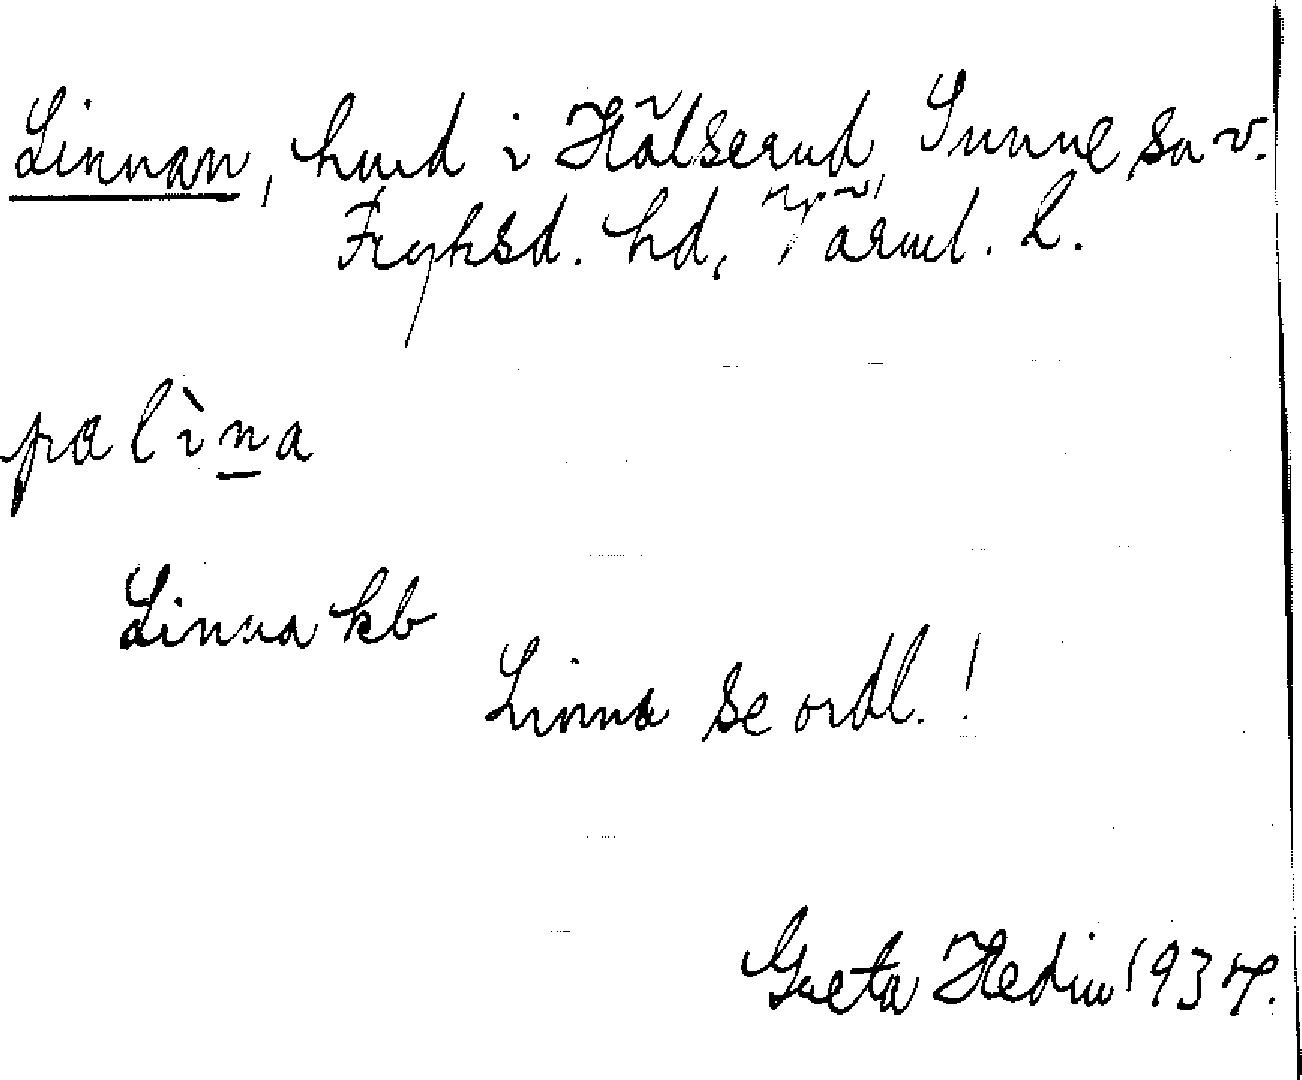 Linnan, hmd i Hålserud, Sunne sn v.
Fryksd. hd, Värml. l.
pa lìna
Linna kb
Linna se ordl.!
Greta Hedin 1937.